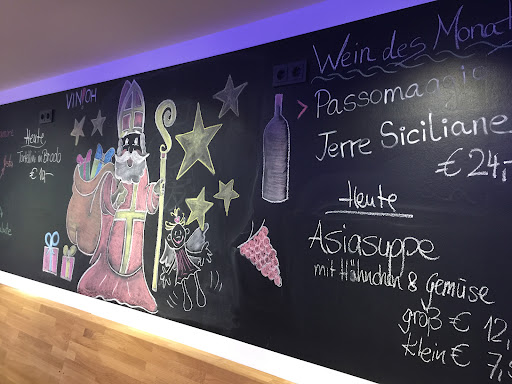 VIN OH
Heute
Tortellini in Brodo
€
Wein des Monat
Passomaggio
Terre Siciliane
€ 24,-
Heute
Asiasuppe
mit Hähnchen & Gemüse
groß € 12,
klein € 7,